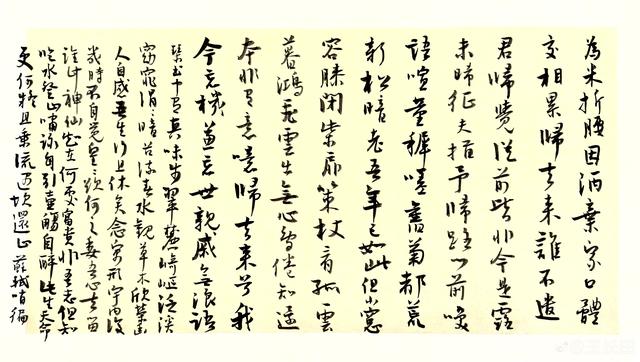 為米折腰因酒棄家口體
交相累歸去來誰不遣
君歸覺從前皆非今是露
未晞征夫指予歸路門前笑
語喧童稚嗟舊菊都荒
新松暗老吾年已如此但小窗
容膝閉柴扉策杖看孤雲
暮鴻飛雲出無心鳥倦知還
本非有意噫歸去來兮我
今忘我兼忘世親戚無浪語
琴書中有真味步翠麓崎嶇泛溪
窈窕涓涓暗谷流春水觀草木欣榮幽
人自感吾生行且休矣念寓形宇內復
幾時不自覺皇皇欲何之委吾心去留
誰計神仙知在何處富貴非吾志但知
臨水登山嘯詠自引壺觴自醉此生天命
更何疑且乘流遇坎還止 蘇軾哨徧